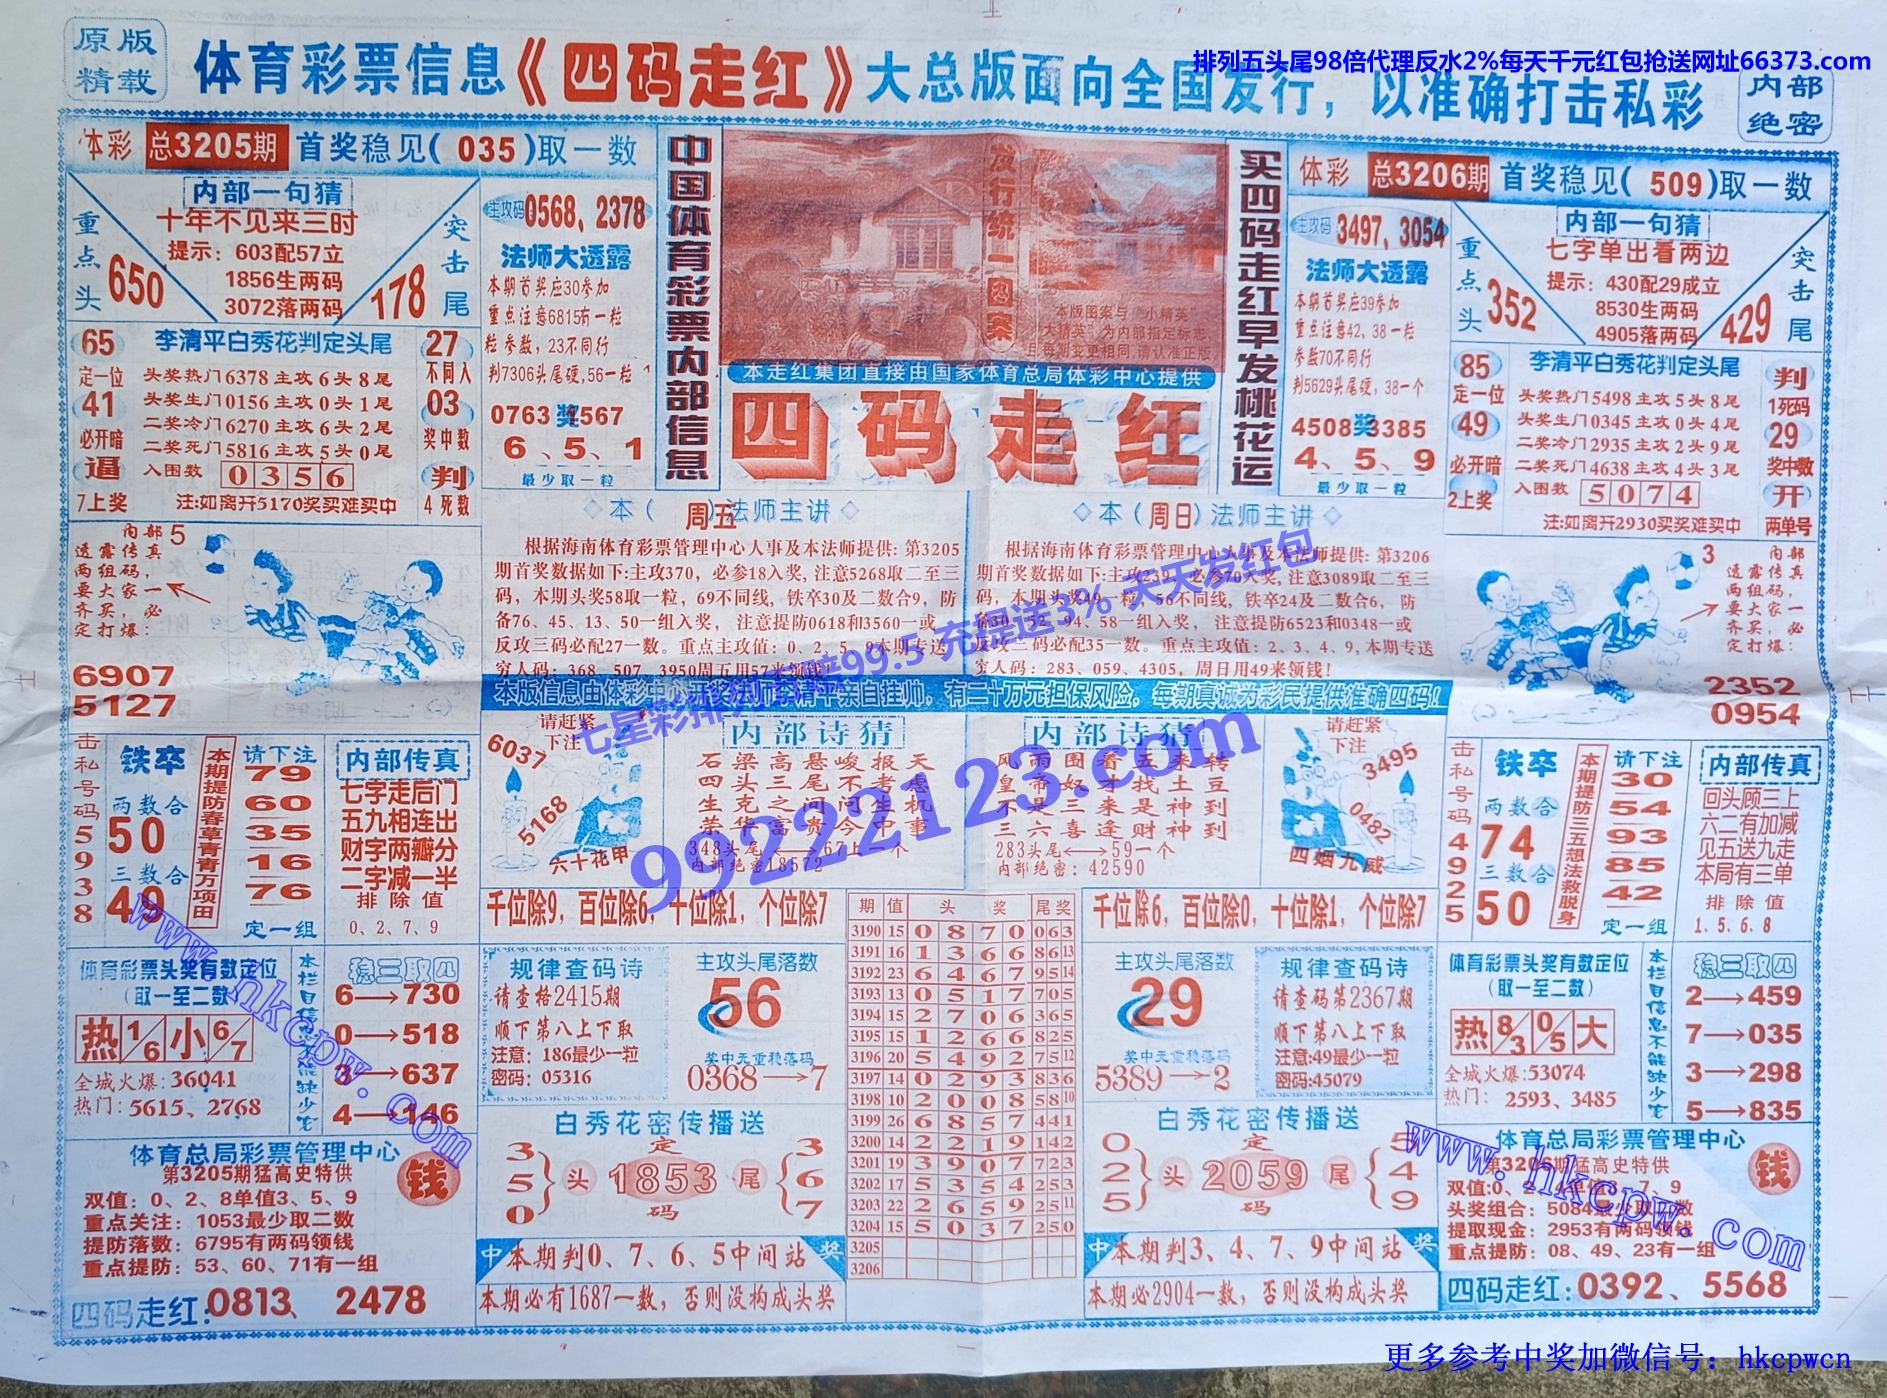 原版
精载
体育彩票信息《四码走红》大总版面向全国发行，以准确打击私彩
内部
绝密
排列五头尾98倍代理反水2%每天千元红包抢送网址66373.com
体彩 总3205期 首奖稳见(035)取一数
内部一句猜
十年不见来三时
提示：603配57立
1856生两码
3072落两码
重点头
650
突击尾
178
主攻码 0568, 2378
法师大透露
本期首奖应30参加
重点注意6815有一粒
粒参数，23不同行
判7306头尾硬,56一粒
0763奖1567
6、5、1
最少取一粒
65
定一位
41
必开暗
逼
7上奖
李清平白秀花判定头尾
头奖热门6378主攻6头8尾
头奖生门0156主攻0头1尾
二奖冷门6270主攻6头2尾
二奖死门5816主攻5头0尾
入围数 0356
注:如离开5170奖买难买中
27
不同入
03
奖中数
判
4死数
中国体育彩票内部信息
发行统一图案
本版图案与“小精英
大精英”为内部指定标志
且每期变更相同,请认准正版
本走红集团直接由国家体育总局体彩中心提供
四码走红
买四码走红早发桃花运
体彩 总3206期 首奖稳见(509)取一数
主攻码 3497, 3054
法师大透露
本期首奖应39参加
重点注意42, 38一粒
参数70不同行
判5629头尾硬, 38一个
4508奖3385
4、5、9
最少取一粒
内部一句猜
七字单出看两边
提示：430配29成立
8530生两码
4905落两码
重点头
352
突击尾
429
85
定一位
49
必开暗
2上奖
李清平白秀花判定头尾
头奖热门5498主攻5头8尾
头奖生门0345主攻0头4尾
二奖冷门2935主攻2头9尾
二奖死门4638主攻4头3尾
入围数 5074
注:如离开2930买奖难买中
判
1死码
29
奖中数
开
两单号
内部5
透露传真
两组码，
要大家一
齐买，必
定打爆：
6907
5127
◇本（周五）法师主讲◇
根据海南体育彩票管理中心人事及本法师提供: 第3205
期首奖数据如下:主攻370，必参18入奖, 注意5268取二至三
码, 本期头奖58取一粒，69不同线, 铁卒30及二数合9，防
备76、45、13、50一组入奖， 注意提防0618和3560一或
反攻三码必配27一数。重点主攻值: 0、2、5、9本期专送
穷人码: 368、507、3950周五用57来领钱!
◇本（周日）法师主讲◇
根据海南体育彩票管理中心人事及本法师提供: 第3206
期首奖数据如下:主攻239，必参70入奖, 注意3089取二至三
码, 本期头奖49一粒，56不同线, 铁卒24及二数合6，防
备30、52、94、58一组入奖， 注意提防6523和0348一或
反攻二码必配35一数。重点主攻值: 2、3、4、9, 本期专送
穷人码: 283、059、4305, 周日用49来领钱!
3 内部
透露传真
两组码，
要大家一
齐买，必
定打爆：
2352
0954
有二十万元担保风险，每期真诚为彩民提供准确四码!
天天发红包
99222123.com
击私号码59938
铁卒
两数合
50
三数合
49
本期提防春草青青万项田
请下注
79
60
35
16
76
定一组
内部传真
七字走后门
五九相连出
财字两瓣分
二字减一半
排除值
0、2、7、9
请赶紧
下注
6037
5168
六十花甲
内部诗猜
石梁高悬峻报天
四头三尾不考虑
生克之间问生机
荣华富贵今中事
348头尾⟷67上一个
内部绝密18572
内部诗猜
风雨围着五来转
皇帝奴才找土豆
不是三来是神到
三六喜逢财神到
283头尾⟷59一个
内部绝密: 42590
请赶紧
下注
3495
0482
四烟九威
击私号码4925
铁卒
两数合
74
三数合
50
本期提防三五想法救脱身
请下注
30
54
93
85
42
定一组
内部传真
回头顾三上
六二有加减
见五送九走
本局有三单
排除值
1.5.6.8
千位除9, 百位除6, 十位除1, 个位除7
千位除6, 百位除0, 十位除1, 个位除7
期 值 头 奖 尾奖
3190 15 0870 063
3191 16 1366 8613
3192 23 6467 9514
3193 13 0517 705
3194 15 2706 365
3195 15 1266 825
3196 20 5492 7512
3197 14 0293 836
3198 10 2008 5810
3199 26 6857 441
3200 14 2219 142
3201 19 3907 723
3202 17 5354 253
3203 22 2659 2511
3204 15 5037 250
3205
3206
体育彩票头奖有数定位
(取一至二数)
热 1/6 小 6/7
全城火爆: 36041
热门: 5615、2768
稳三取四
6→730
0→518
3→637
4→146
规律查码诗
请查格2415期
顺下第八上下取
注意：186最少一粒
密码：05316
主攻头尾落数
56
奖中无重稳落码
0368→7
主攻头尾落数
29
奖中无重稳落码
5389→2
规律查码诗
请查码第2367期
顺下第八上下取
注意:49最少一粒
密码:45079
体育彩票头奖有数定位
(取一至二数)
热 8/3 0/5 大
全城火爆:53074
热门：2593、3485
本栏目信息不能缺少它
稳三取四
2→459
7→035
3→298
5→835
体育总局彩票管理中心
第3205期猛高史特供
钱
双值: 0、2、8单值3、5、9
重点关注：1053最少取二数
提防落数：6795有两码领钱
重点提防：53、60、71有一组
四码走红:0813、2478
白秀花密传播送
350
头
定
1853
码
尾
367
中 本期判0、7、6、5中间站 奖
本期必有1687一数，否则没构成头奖
白秀花密传播送
025
头
定
2059
码
尾
549
中 本期判3、4、7、9中间站 奖
本期必2904一数，否则没构成头奖
体育总局彩票管理中心
第3206期猛高史特供
钱
头奖组合：5084最少取二数
提取现金：2953有两码领钱
重点提防：08、49、23有一组
四码走红:0392、5568
www.hkcpw.com
www.hkcpw.com
更多参考中奖加微信号：hkcpwcn